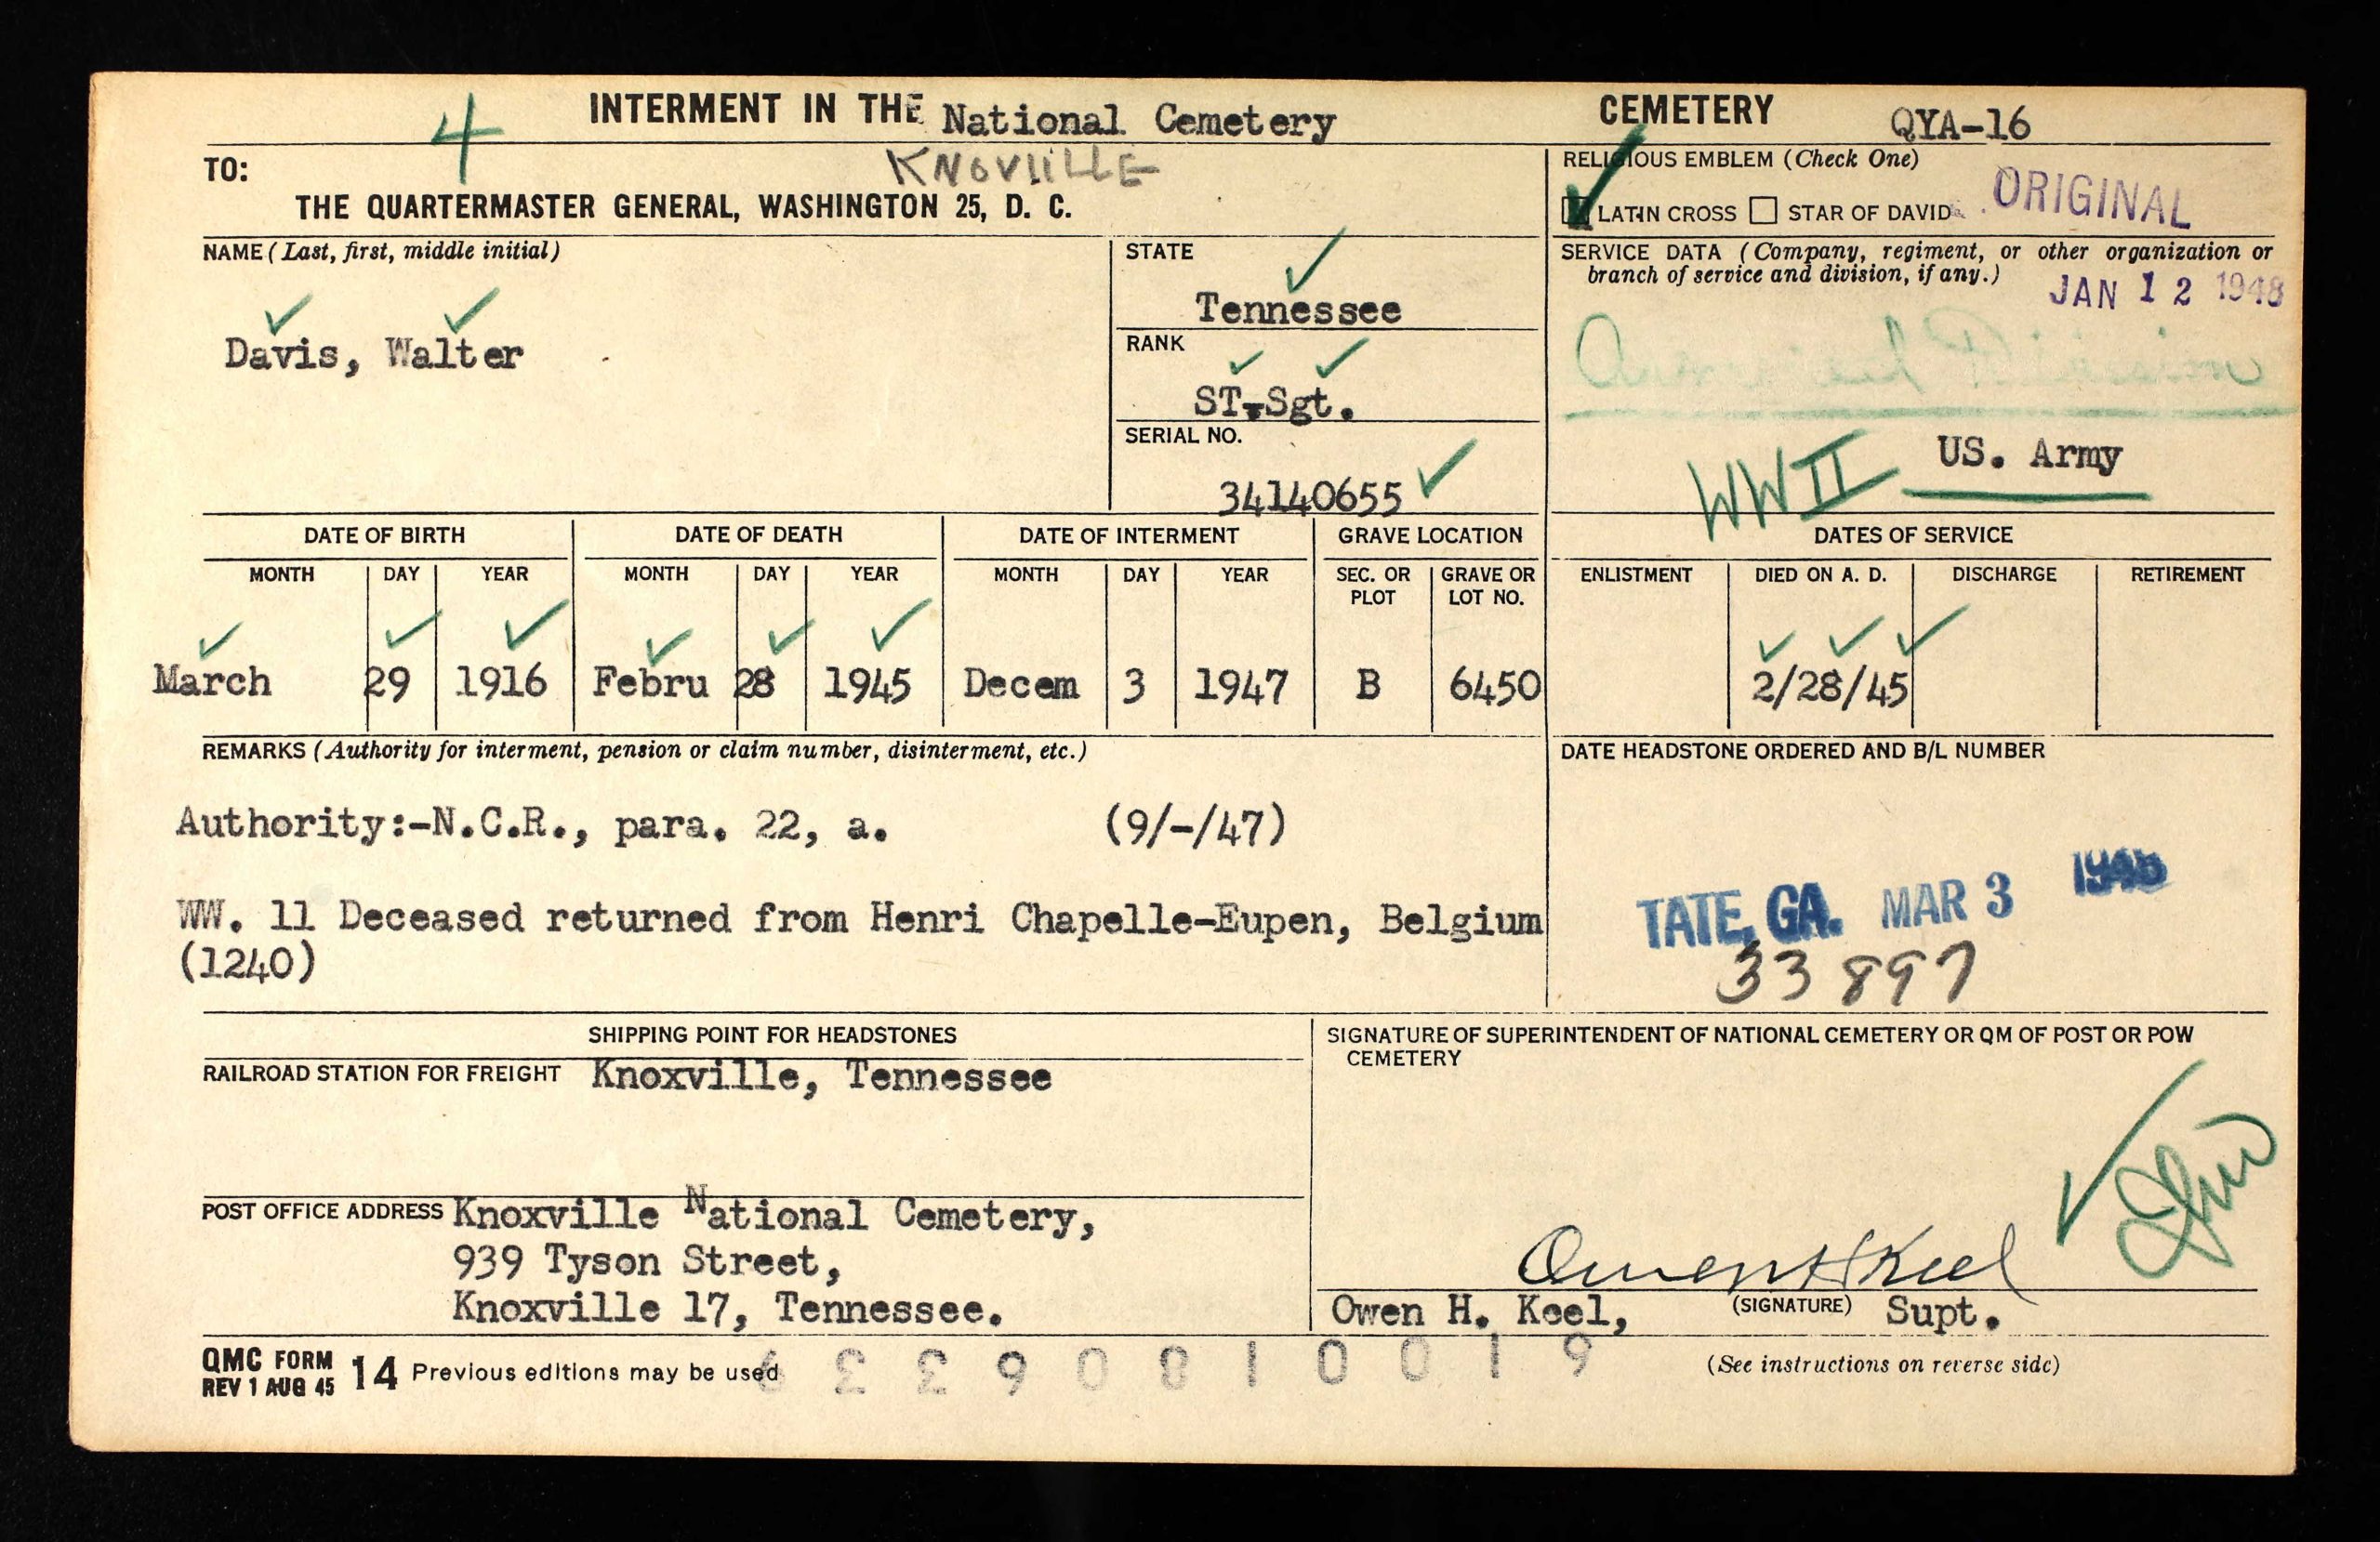 INTERMENT IN THE National Cemetery CEMETERY QYA-16
4
KNOVIILLE
TO:
THE QUARTERMASTER GENERAL, WASHINGTON 25, D. C.
RELIGIOUS EMBLEM (Check One)
LATIN CROSS STAR OF DAVID ORIGINAL
NAME (Last, first, middle initial)
Davis, Walter
STATE
Tennessee
RANK
ST.Sgt.
SERIAL NO.
34140655
SERVICE DATA (Company, regiment, or other organization or
branch of service and division, if any.)
JAN 12 1948
Armored Division
WWII US. Army
DATE OF BIRTH DATE OF DEATH DATE OF INTERMENT GRAVE LOCATION DATES OF SERVICE
MONTH DAY YEAR MONTH DAY YEAR MONTH DAY YEAR SEC. OR PLOT GRAVE OR LOT NO. ENLISTMENT DIED ON A. D. DISCHARGE RETIREMENT
March 29 1916 Febru 28 1945 Decem 3 1947 B 6450 2/28/45
REMARKS (Authority for interment, pension or claim number, disinterment, etc.)
Authority:-N.C.R., para. 22, a. (9/-/47)
WW. 11 Deceased returned from Henri Chapelle-Eupen, Belgium
(1240)
DATE HEADSTONE ORDERED AND B/L NUMBER
TATE, GA. MAR 3
33897
SHIPPING POINT FOR HEADSTONES
RAILROAD STATION FOR FREIGHT Knoxville, Tennessee
POST OFFICE ADDRESS Knoxville National Cemetery,
939 Tyson Street,
Knoxville 17, Tennessee.
SIGNATURE OF SUPERINTENDENT OF NATIONAL CEMETERY OR QM OF POST OR POW
CEMETERY
Owen H Keel
Owen H. Keel, (SIGNATURE) Supt.
QMC FORM
REV 1 AUG 45 14 Previous editions may be used
(See instructions on reverse side)